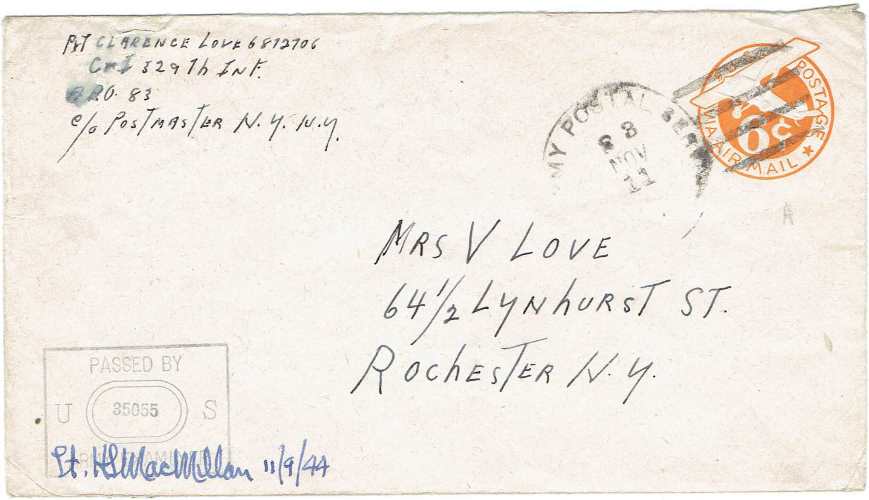 Pvt CLARENCE LOVE 6812706
Co I 329Th INF.
APO. 83
c/o POSTMASTER N.Y. N.Y.
MY POSTAL SER
8 3
NOV
11
U.S. POSTAGE
6¢
VIA AIR MAIL
MRS V LOVE
64 1/2 LYNHURST ST.
ROCHESTER N.Y.
PASSED BY
U 35055 S
ARMY EXAMINER
Lt. HS MacMillan 11/9/44